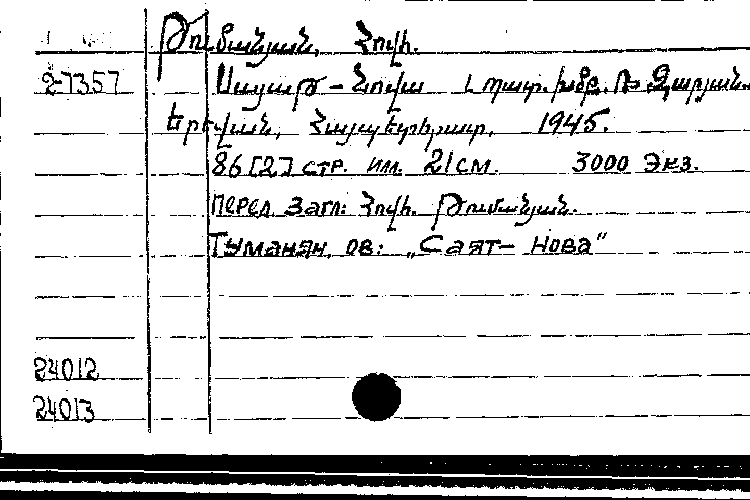 Թումանյան, Հովհ.
2-7357 Սայաթ-Նովա Լ պատ. խմբ. Ռ. Զարյան.
Երևան, Հայպետհրատ, 1945.
86 [2] стр. ил. 21 см. 3000 экз.
Перед загл: Հովհ. Թումանյան.
Туманян, ов: „Саят-Нова"
24012
24013